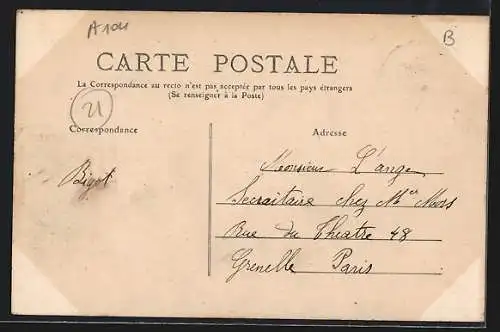 A 104
B
CARTE POSTALE
La Correspondance au recto n'est pas acceptée par tous les pays étrangers
(Se renseigner à la Poste)
21
Correspondance
Adresse
Bigot
Monsieur L'ange
Secraitaire chez Mr Mors
Rue du Theatre 48
Grenelle Paris